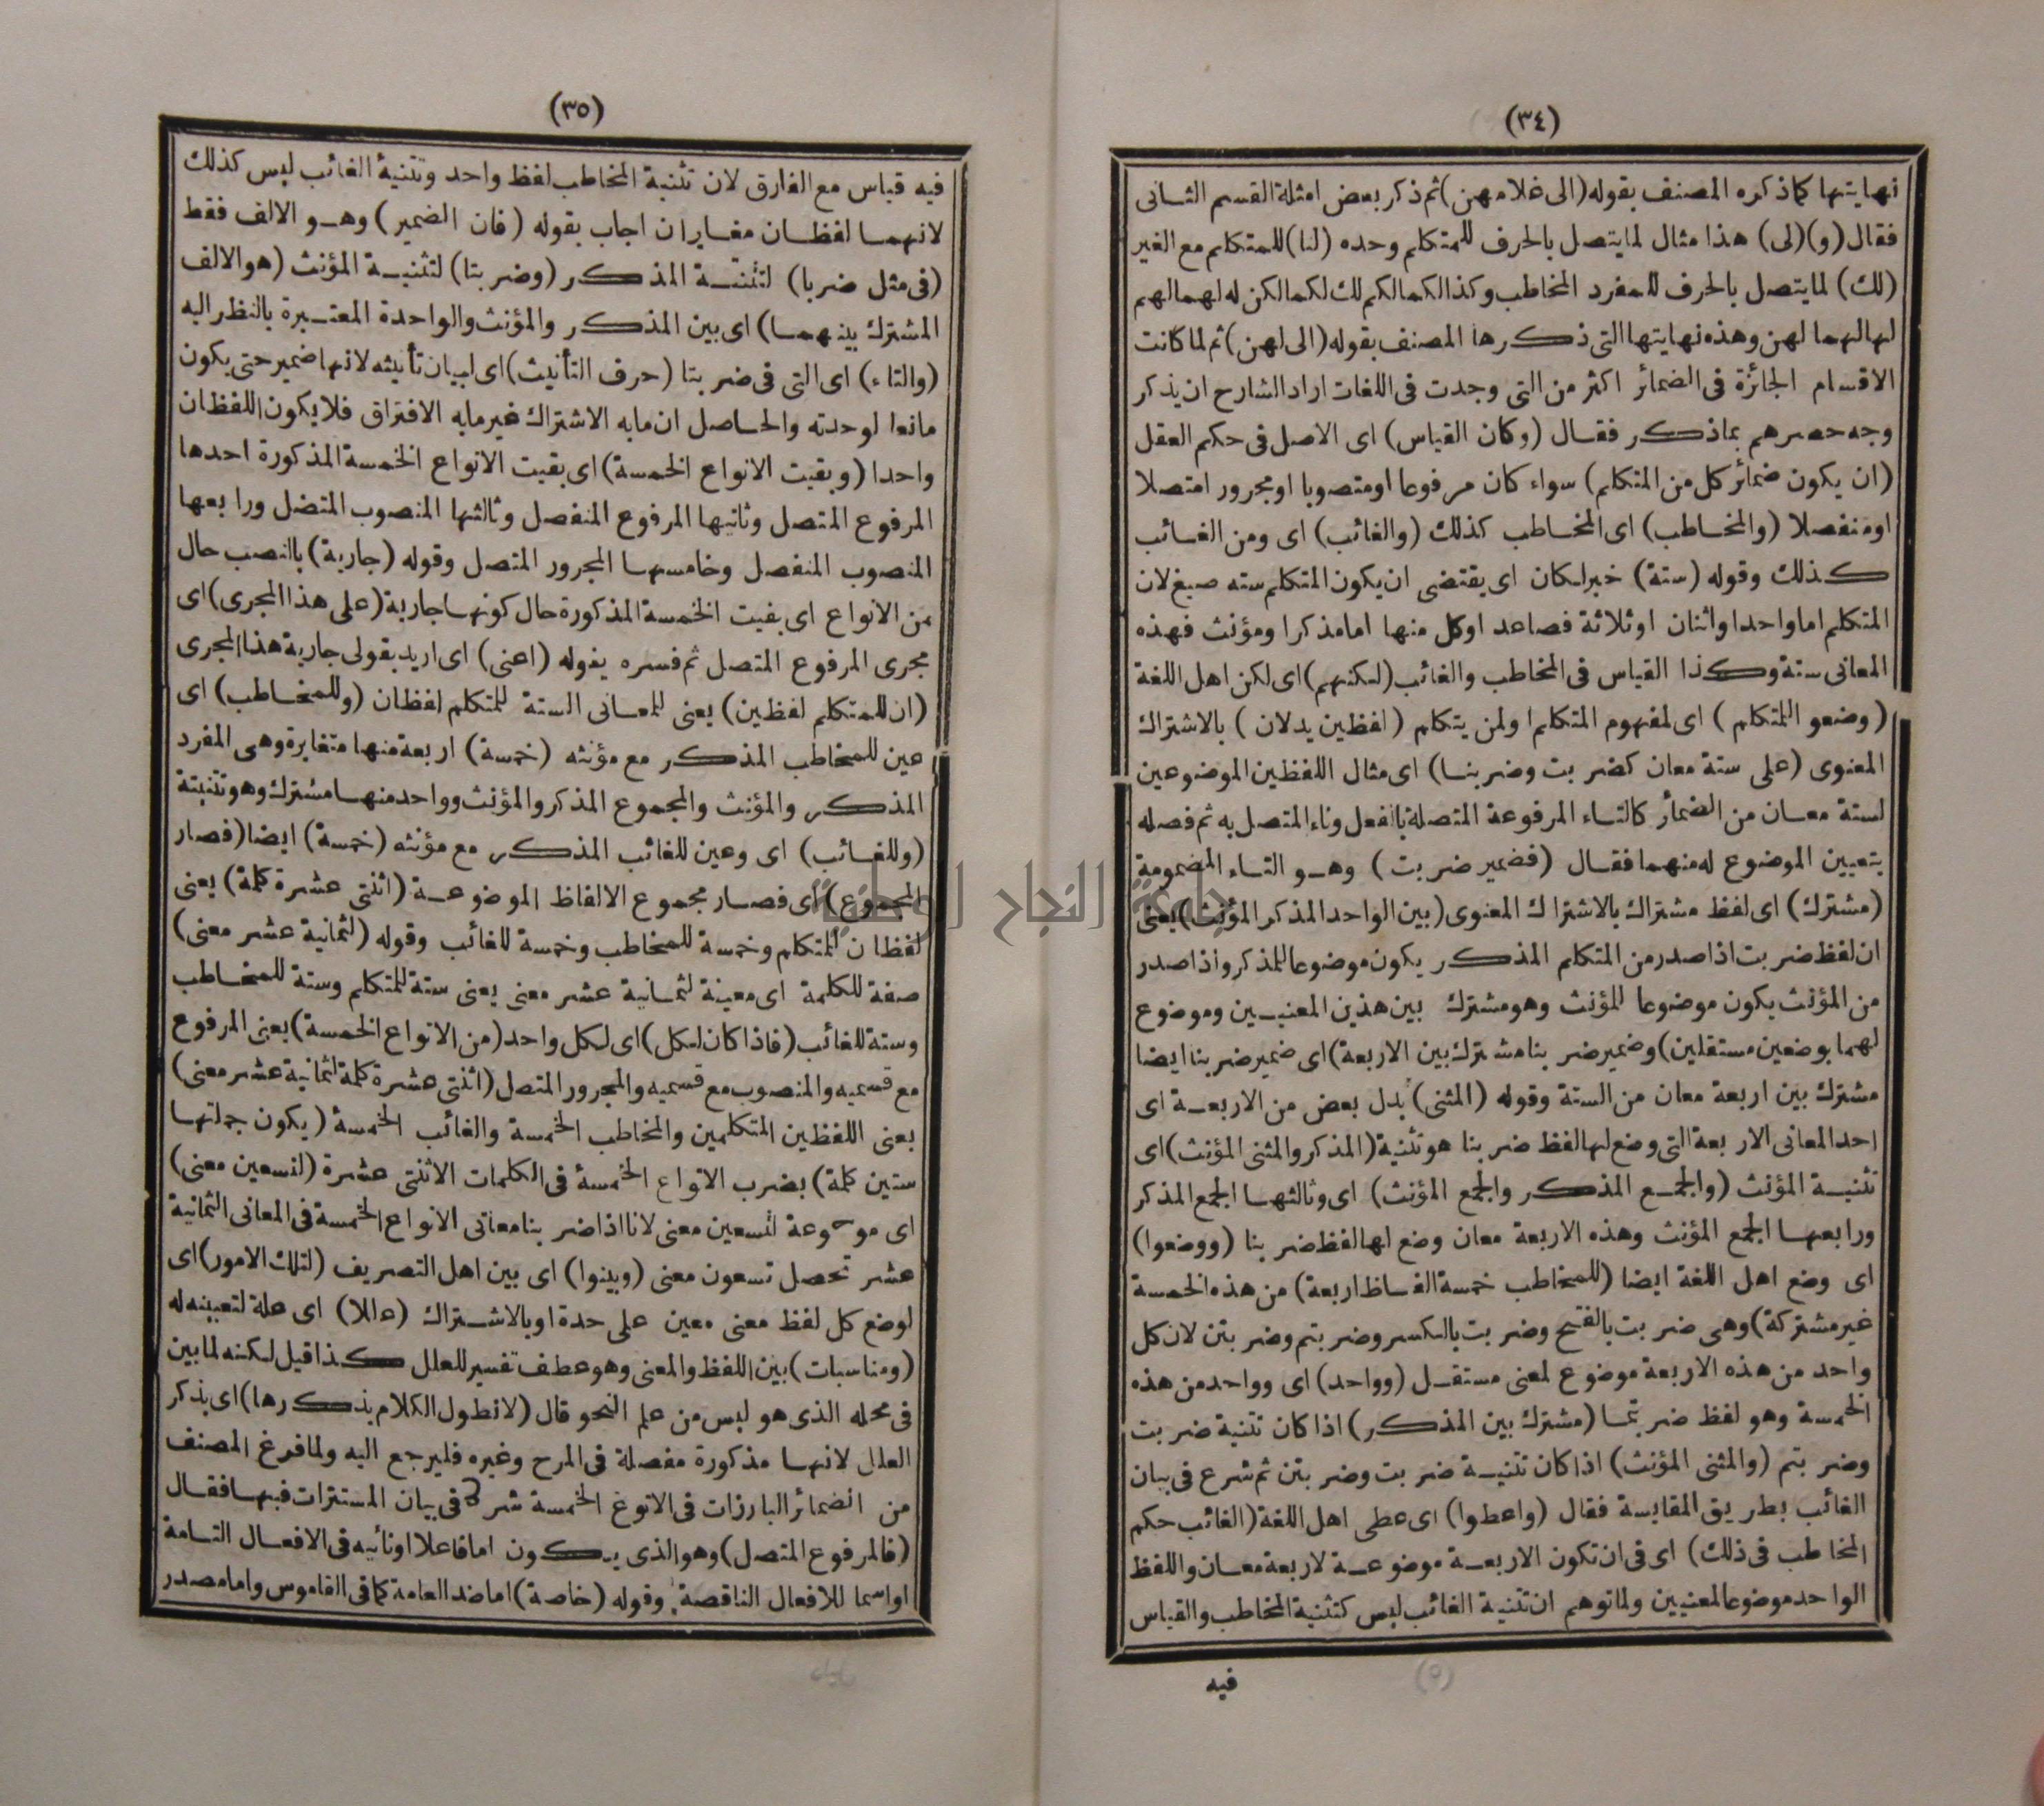 (٣٤)
نهايتها كما ذكره المصنف بقوله (الى غلامهن) ثم ذكر بعض امثلة القسم الثانى
فقال (و) (لى) هذا مثال لما يتصل بالحرف للمتكلم وحده (لنا) للمتكلم مع الغير
(لك) لما يتصل بالحرف للمفرد المخاطب وكذا لكما لكم لك لكما لكن له لهما لهم
لها لهما لهن وهذه نهايتها التى ذكرها المصنف بقوله (الى لهن) ثم لما كانت
الاقسام الجائزة فى الضمائر اكثر من التى وجدت فى اللغات اراد الشارح ان يذكر
وجه حصرهم بما ذكر فقال (وكان القياس) اى الاصل فى حكم العقل
(ان يكون ضمائر كل من المتكلم) سواء كان مرفوعا اومنصوبا اومجرور امتصلا
اومنفصلا (والمخاطب) اى المخاطب كذلك (والغائب) اى ومن الغائب
كذلك وقوله (ستة) خبر لكان اى يقتضى ان يكون المتكلم سته صيغ لان
المتكلم اما واحد او اثنان اوثلاثة فصاعد اوكل منها اما مذكرا ومؤنث فهذه
المعانى ستة وكذا القياس فى المخاطب والغائب (لكنهم) اى لكن اهل اللغة
(وضعو المتكلم) اى لمفهوم المتكلم او لمن يتكلم (لفظين يدلان) بالاشتراك
المعنوى (على ستة معان كضربت وضربنا) اى مثال اللفظين الموضوعين
لستة معان من الضمائر كالتاء المرفوعة المتصلة بالفعل وناء المتصل به ثم فصله
بتعيين الموضوع له منهما فقال (فضمير ضربت) وهو التاء المضمومة
(مشترك) اى لفظ مشترك بالاشتراك المعنوى (بين الواحد المذكر المؤنث) يعنى
ان لفظ ضربت اذا صدر من المتكلم المذكر يكون موضوعا للمذكر واذا صدر
من المؤنث يكون موضوعا للمؤنث وهو مشترك بين هذين المعنيين وموضوع
لهما بوضعين مستقلين) وضمير ضربنا مشترك بين الاربعة) اى ضمير ضربنا ايضا
مشترك بين اربعة معان من الستة وقوله (المثنى) بدل بعض من الاربعة اى
احد المعانى الاربعة التى وضع لها لفظ ضربنا هو تثنية (المذكر والمثنى المؤنث) اى
تثنية المؤنث (والجمع المذكر والجمع المؤنث) اى وثالثها الجمع المذكر
ورابعها الجمع المؤنث وهذه الاربعة معان وضع لها لفظ ضربنا (ووضعوا)
اى وضع اهل اللغة ايضا (للمخاطب خمسة الفاظ اربعة) من هذه الخمسة
غير مشتركة) وهى ضربت بالفتح وضربت بالكسر وضربتم وضربتن لان كل
واحد من هذه الاربعة موضوع لمعنى مستقل (وواحد) اى وواحد من هذه
الخمسة وهو لفظ ضربتما (مشترك بين المذكر) اذا كان تثنية ضربت
وضربتم (والمثنى المؤنث) اذا كان تثنية ضربت وضربتن ثم شرع فى بيان
الغائب بطريق المقايسة فقال (واعطوا) اى عطى اهل اللغة (الغائب حكم
المخاطب فى ذلك) اى فى ان تكون الاربعة موضوعة لاربعة معان واللفظ
الواحد موضوعا لمعنيين ولما توهم ان تثنية الغائب ليس كتثنية المخاطب والقياس
فيه
(٣٥)
فيه قياس مع الفارق لان تثنية المخاطب لفظ واحد وتثنية الغائب ليس كذلك
لانهما لفظان مغايران اجاب بقوله (فان الضمير) وهو الالف فقط
(فى مثل ضربا) لتثنية المذكر (وضربتا) لتثنية المؤنث (هو الالف
المشترك بينهما) اى بين المذكر والمؤنث والواحدة المعتبرة بالنظر اليه
(والتاء) اى التى فى ضربتا (حرف التأنيث) اى لبيان تأنيثه لانها ضمير حتى يكون
مانعا لوحدته والحاصل ان مابه الاشتراك غير مابه الافتراق فلا يكون اللفظان
واحدا (وبقيت الانواع الخمسة) اى بقيت الانواع الخمسة المذكورة احدها
المرفوع المتصل وثانيها المرفوع المنفصل وثالثها المنصوب المتصل ورابعها
المنصوب المنفصل وخامسها المجرور المتصل وقوله (جارية) بالنصب حال
من الانواع اى بقيت الخمسة المذكورة حال كونها جارية (على هذا المجرى) اى
مجرى المرفوع المتصل ثم فسره بقوله (اعنى) اى اريد بقولى جارية هذا المجرى
(ان للمتكلم لفظين) يعنى للمعانى الستة للمتكلم لفظان (وللمخاطب) اى
عين للمخاطب المذكر مع مؤنثه (خمسة) اربعة منها متغايرة وهى المفرد
المذكر والمؤنث والمجموع المذكر والمؤنث وواحد منها مشترك وهو تثنيتة
(وللغائب) اى وعين للغائب المذكر مع مؤنثه (خمسة) ايضا (فصار
المجموع) اى فصار مجموع الالفاظ الموضوعة (اثنتى عشرة كلمة) يعنى
لفظان للمتكلم وخمسة للمخاطب وخمسة للغائب وقوله (لثمانية عشر معنى)
صفة للكلمة اى معينة لثمانية عشر معنى يعنى ستة للمتكلم وستة للمخاطب
وستة للغائب (فاذا كان لكل) اى لكل واحد (من الانواع الخمسة) يعنى المرفوع
مع قسميه والمنصوب مع قسميه والمجرور المتصل (اثنتى عشرة كلمة لثمانية عشر معنى)
يعنى اللفظين المتكلمين والمخاطب الخمسة والغائب الخمسة (يكون جملتها
ستين كلمة) بضرب الانواع الخمسة فى الكلمات الاثنتى عشرة (لتسعين معنى)
اى موضوعة لتسعين معنى لانا اذا ضربنا معانى الانواع الخمسة فى المعانى الثمانية
عشر تحصل تسعون معنى (وبينوا) اى بين اهل التصريف (لتلك الامور) اى
لوضع كل لفظ معنى معين على حدة او بالاشتراك (عللا) اى علة لتعيينه له
(ومناسبات) بين اللفظ والمعنى وهو عطف تفسير للعلل كذا قيل لكنه لما بين
فى محله الذى هو ليس من علم النحو قال (لانطول الكلام بذكرها) اى بذكر
العلل لانها مذكورة مفصلة فى المرح وغيره فليرجع اليه ولما فرغ المصنف
من الضمائر البارزات فى الانوغ الخمسة شرع فى بيان المستترات فيها فقال
(فالمرفوع المتصل) وهو الذى يكون اما فاعلا اونائبه فى الافعال التامة
اواسما للافعال الناقصة وقوله (خاصة) اما ضد العامة كما فى القاموس واما مصدر
جامعة النجاح الوطنية